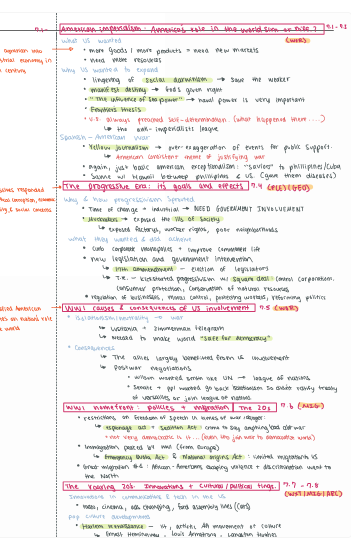 7.1- American imperialism: America's role in the world sin or hire? 7.1 - 7.2
what US wanted (WOR)
• more goods / more products = need new markets
• need more resources
why US wanted to expand
• lingering of social darwinism → save the weaker
• manifest destiny → God's given right
• "The influence of Sea power" → naval power is very important
• Frontier thesis
• U.S. always preached self-determination (what happened there.....)
↳ the anti-imperialists league
Spanish-American War
• Yellow journalism → over exaggeration of events for public support
↳ American consistent theme of justifying war
• again, just basic american exceptionalism: "saviors" to phillipines/Cuba
• same w/ Hawaii between phillipines & US (gave them diseases)
The progressive Era: its goals and effects 7.4 (PCE) (GEO)
Why & how progressivism sprouted
• Time of change + industrial → NEED GOVERNMENT INVOLVEMENT
• Muckrakers → exposed the ills of society
↳ exposed factorys, worker rights, poor neighborhoods
what they wanted & did achieve
• curb corporate monopolies + improve committee life
• new legislation and government intervention
↳ 17th amendment → election of legislators
↳ T.R. - kickstarted progressivism w/ square deal (control corporation,
consumer protection, conservation of natural resources
• regulation of businesses, moral control, protecting workers, reforming politics
WWI causes & consequences of US involvement 7.5 (WOR)
• isolationism/neutrality → war
↳ Lusitania + Zimmerman telegram
↳ wanted to make world "safe for democracy"
• Consequences
↳ The allies largely benefited from US involvement
↳ Postwar negotiations
• Wilson wanted smth like UN → league of nations
• Senate + ppl wanted go back isolationism so didnt ratify treaty
of versailles or join league of nations
WWI homefront: policies + migration | The 20s 7.6 (MIG)
• restrictions on freedom of speech in times of war danger
↳ espionage act + Sedition Act: crime to say anything bad abt war
• not very democratic is it...
• Immigration paused by and (from Europe)
↳ Emergency Quota Act & National origins act: limited migrants US
• Great migration #1: African-Americans escaping violence + discrimination went to
the North
The roaring 20s: innovations + cultural/political tings. 7.7 - 7.8
Innovations in communications & tech in the US (WXT/MIG/ARC)
• radio, cinema, ads changing, ford assembly lines (cars)
pop culture developments
• Harlem renaissance - lit, artistic AA movement of culture
↳ Ernest Hemingway, Louis Armstrong, Langston Hughes